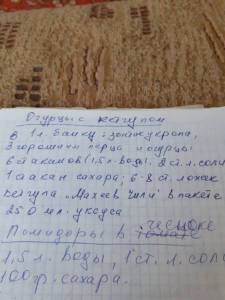 Огурцы с кетчупом
В 1л. банку: зонтик укропа,
3 горошины перца и огурцы
6 стаканов (1,5 л. воды), 2 ст. л. соли
1 стакан сахара; 6-8 ст. ложек
кетчупа "Махеев Чили" в пакете
250 мл. уксуса
Помидоры в чесноке
1,5 л. воды, 1 ст. л. соли
100 гр. сахара.